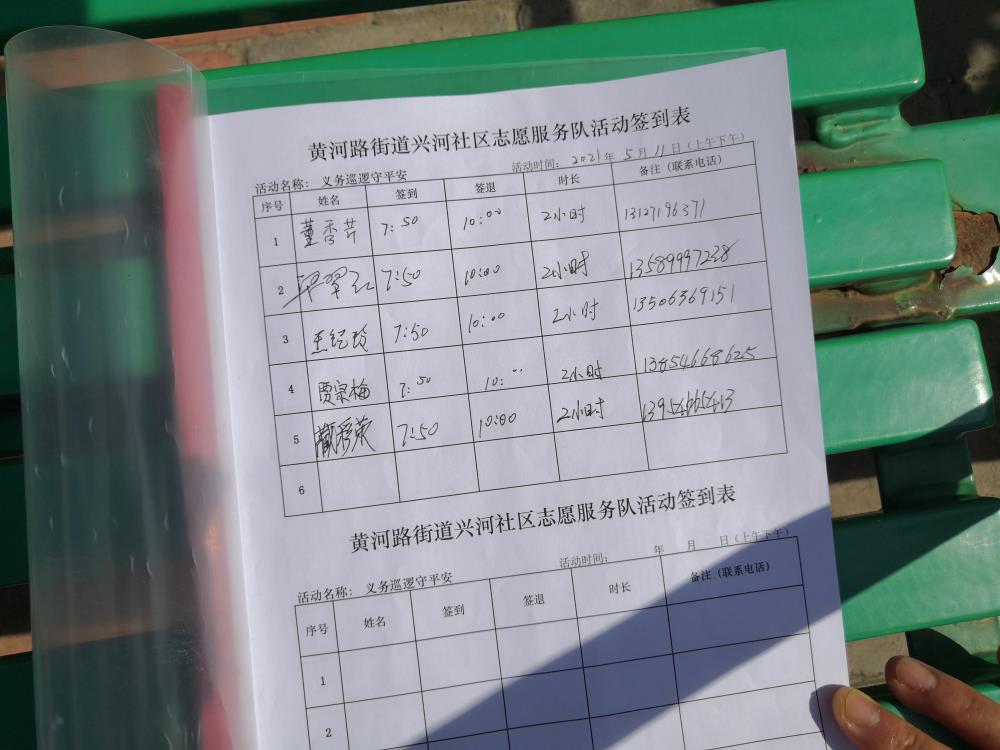 黄河路街道兴河社区志愿服务队活动签到表
活动名称: 义务巡逻守平安 活动时间: 2021年 5月 11日(上午下午)
序号 姓名 签到 签退 时长 备注(联系电话)
1 董香芹 7:50 10:00 2小时 13127196371
2 翠红 7:50 10:00 2小时 13589997238
3 王纪玲 7:50 10:00 2小时 13506369151
4 贾宗梅 7:50 10:00 2小时 13854668625
5 7:50 10:00 2小时 13954665413
6
黄河路街道兴河社区志愿服务队活动签到表
活动名称: 义务巡逻守平安 活动时间: 年 月 日(上午下午)
序号 姓名 签到 签退 时长 备注(联系电话)
1
2